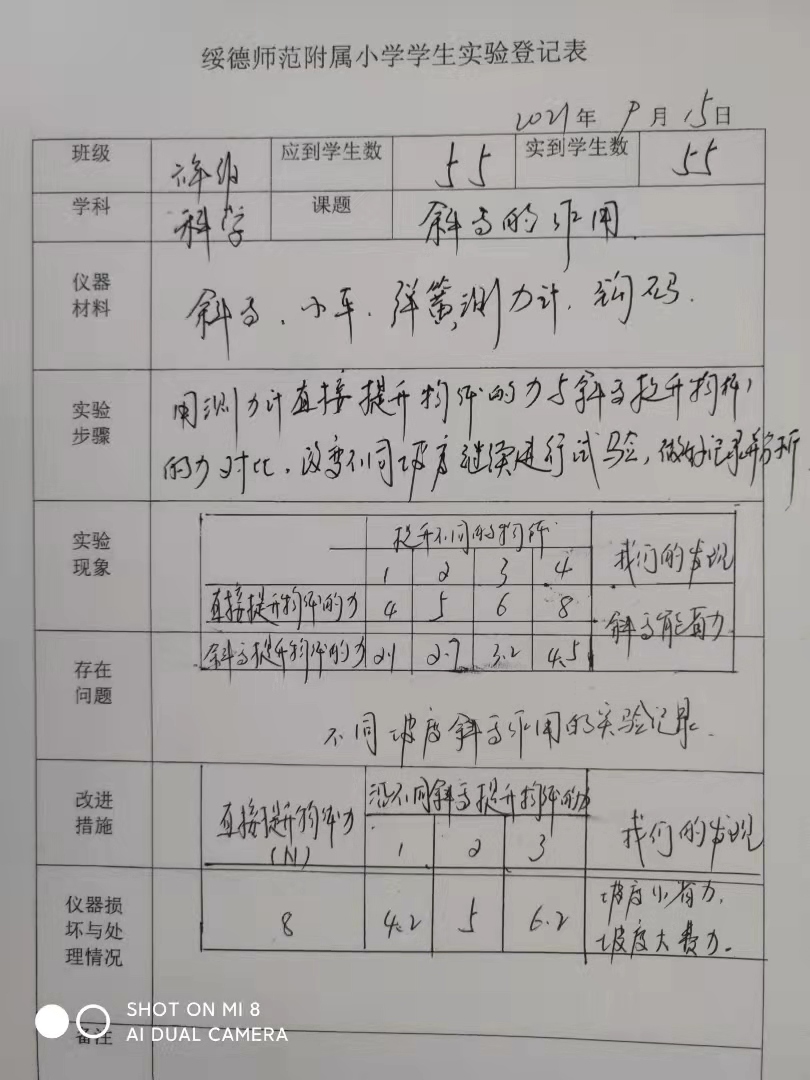 绥德师范附属小学学生实验登记表
2021年 9月 15日
班级 六年级 应到学生数 55 实到学生数 55
学科 科学 课题 斜面的作用.
仪器材料 斜面、小车、弹簧测力计、钩码.
实验步骤 用测力计直接提升物体的力与斜面提升物体
的力对比,改变不同坡度继续进行试验,做好记录并分析
实验现象 提升不同的物体 我们的发现
1 2 3 4
直接提升物体的力 4 5 6 8 斜面能省力
斜面提升物体的力 2.1 2.7 3.2 4.5
存在问题
不同坡度斜面作用的实验记录.
改进措施 直接提升物体力(N) 沿不同斜面提升物体的力 我们的发现
1 2 3
仪器损坏与处理情况 8 4.2 5 6.2 坡度小省力,
坡度大费力.
备注
SHOT ON MI 8
AI DUAL CAMERA